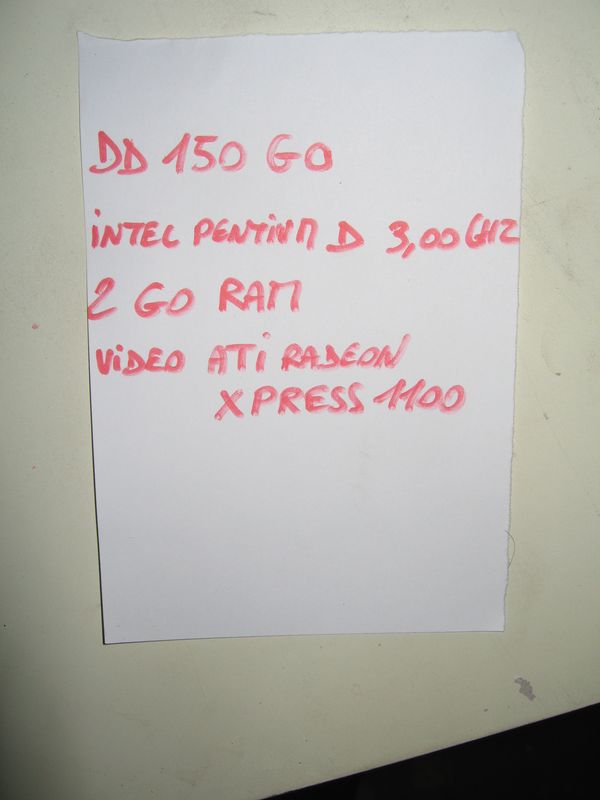 DD 150 GO
INTEL PENTIUM D 3,00 GHZ
2 GO RAM
VIDEO ATI RADEON
XPRESS 1100